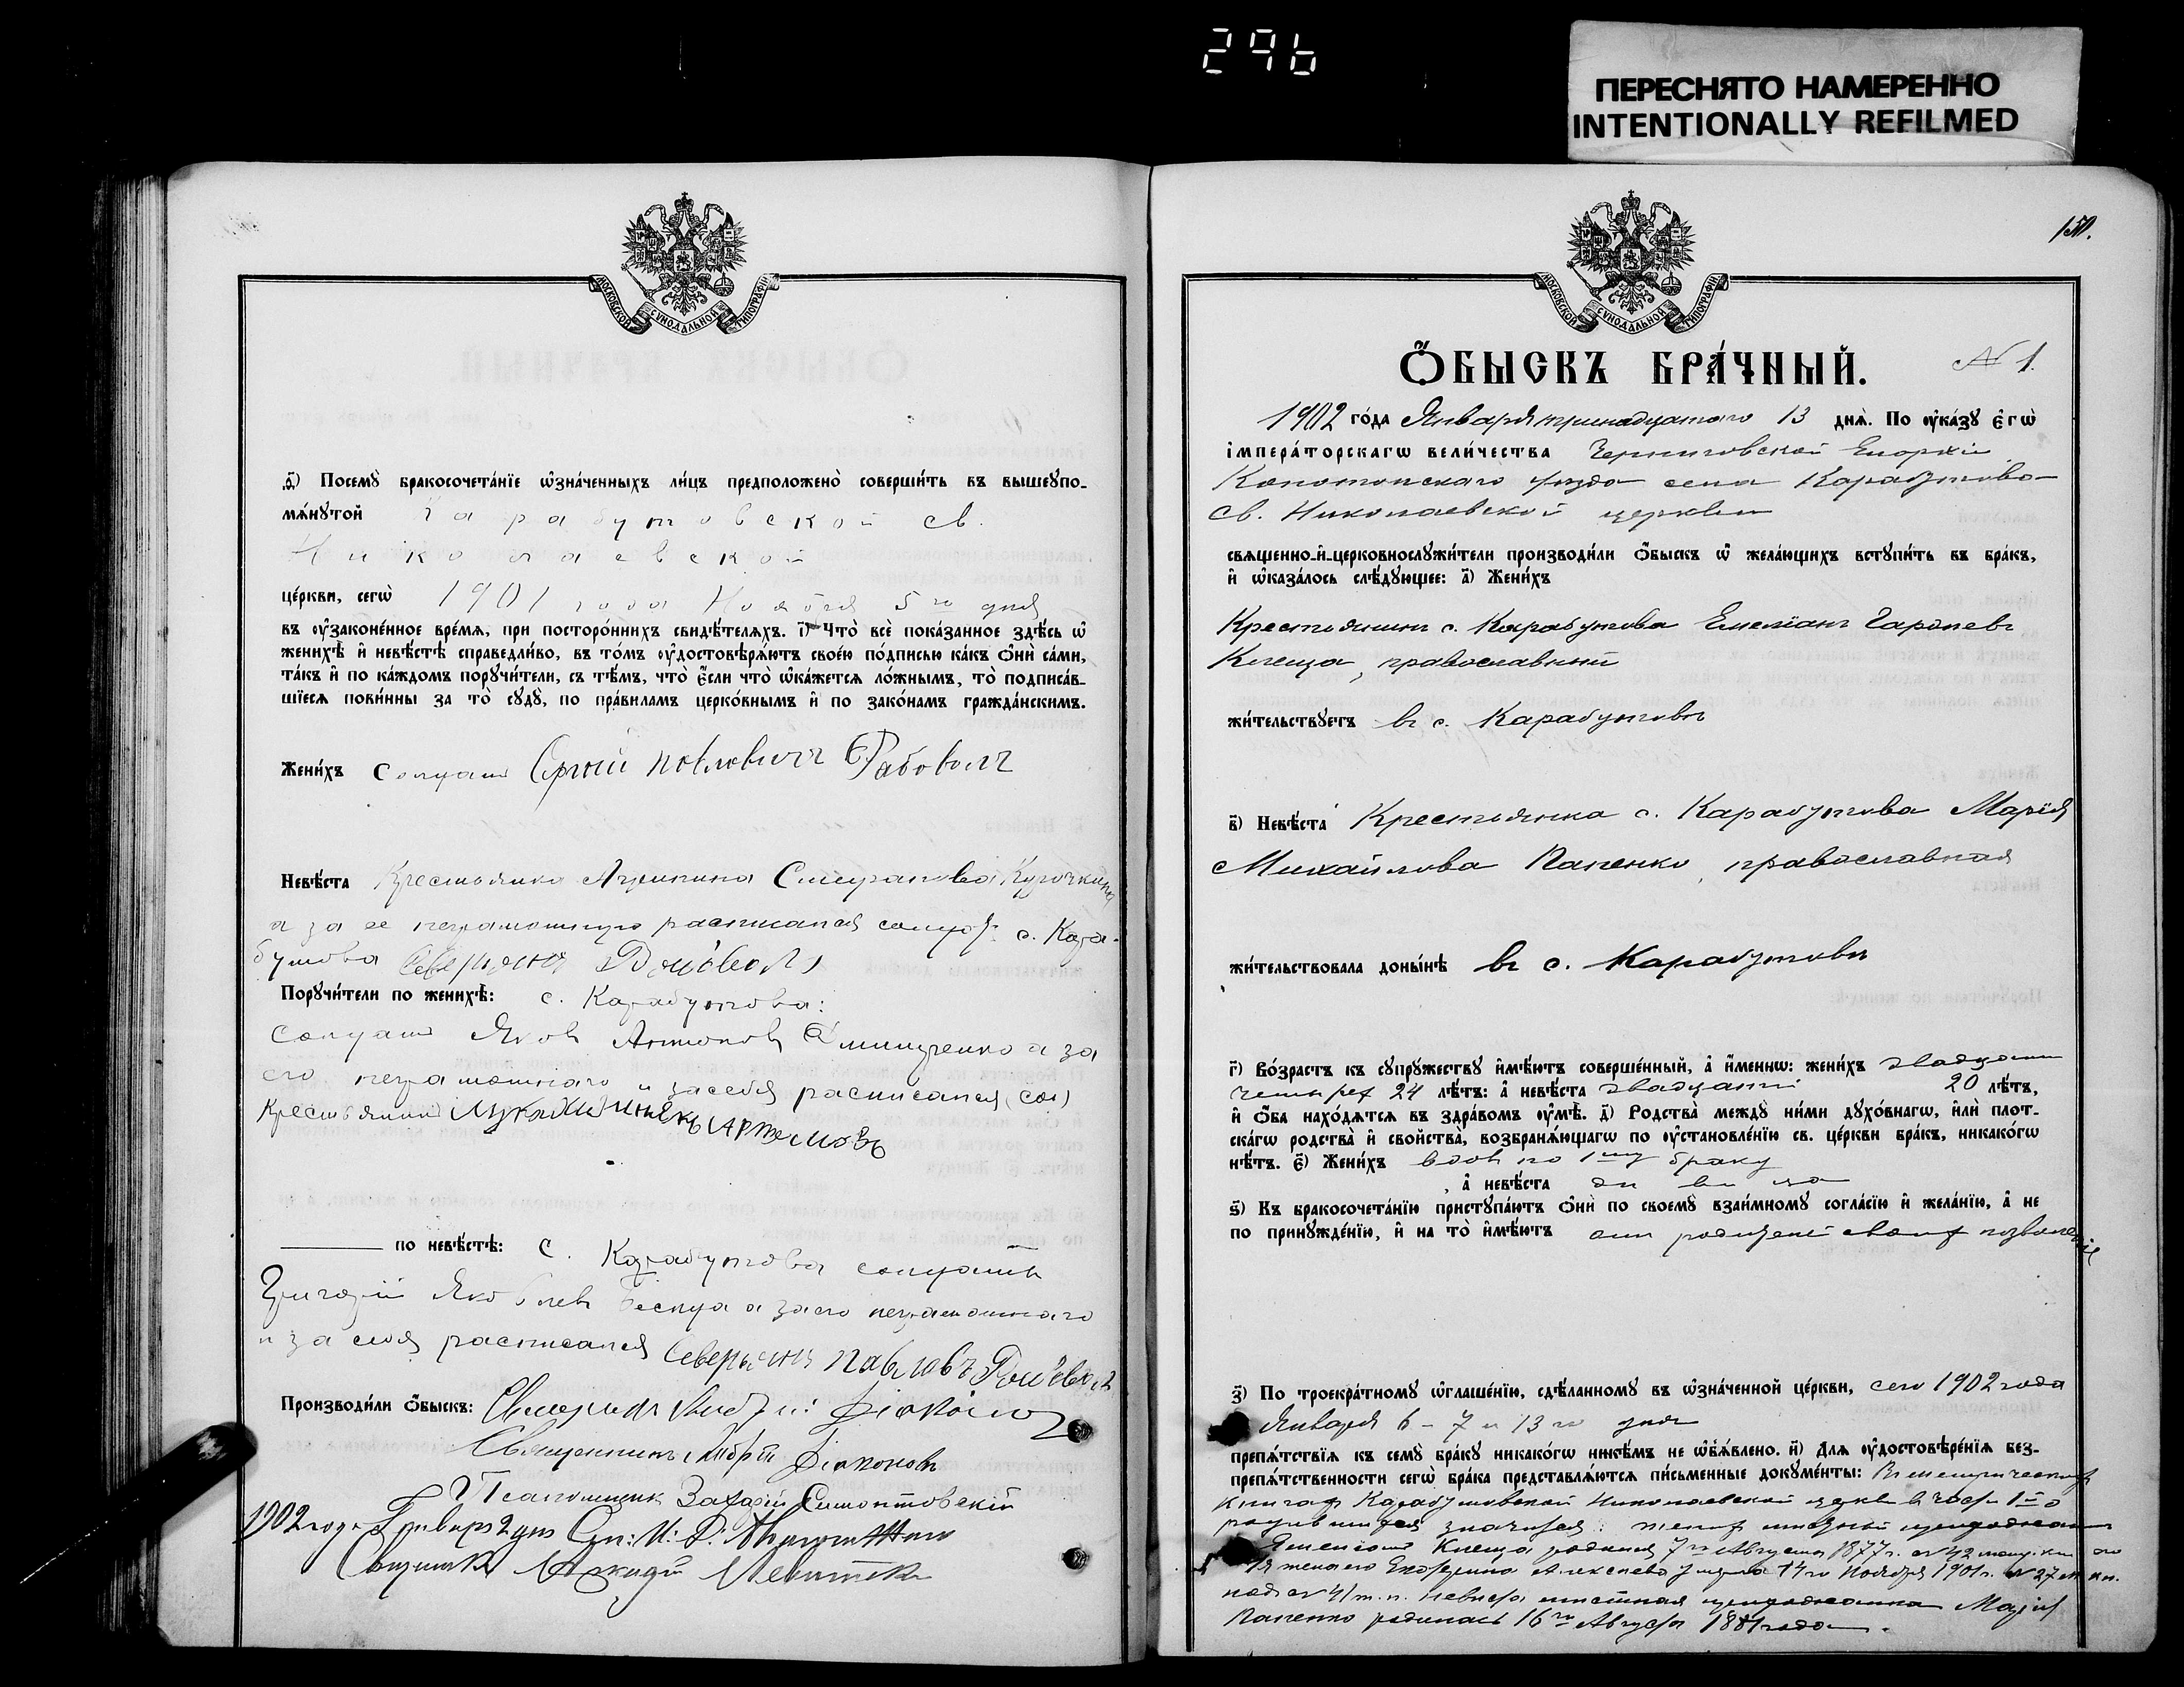 296
ПЕРЕСНЯТО НАМЕРЕННО
INTENTIONALLY REFILMED
МОСКОВСКОЙ СУНОДАЛЬНОЙ ТИПОГРАФІИ
ѳ҃) Посемꙋ̀ бракосочета́нїе ѡ҆зна́ченныхъ ли́цъ предположено̀ соверши́ть въ вышеꙋпо-
мѧ́нꙋтой Карабутовской св.
Николаевской
це́ркви, сегѡ̀ 1901 года Ноября 5го дня
въ ᲂу҆законе́нное вре́мѧ, при посторо́ннихъ свидѣ́телѧхъ. і҃) Что̀ всѐ пока́занное здѣ́сь ѡ҆
женихѣ̀ и҆ невѣ́стѣ справедли́во, въ то́мъ ᲂу҆достовѣрѧ́ютъ свое́ю по́дписью ка́къ ѻ҆нѝ са́ми,
та́къ и҆ по ка́ждомъ порꙋчи́тели, съ тѣ́мъ, что̀ є҆́сли что̀ ѡ҆ка́жетсѧ ло́жнымъ, то̀ подписа́в-
шїесѧ пови́нны за то̀ сꙋдꙋ̀, по пра́виламъ церко́внымъ и҆ по зако́намъ гражда́нскимъ.
Жени́хъ Солдатъ
Невѣ́ста Крестьянка
а за ее неграмотную расписался солдат с. Кара-
бутова
Порꙋчи́тели по женихѣ̀: с. Карабутова:
Солдат Яков Антонов а за
его неграмотнаго и за себя расписался
Крестьянин
по невѣ́стѣ: с. Карабутова солдатъ
Григорій Яковлев а за его неграмотнаго
и за себя расписался Северьянъ Павловъ
Производи́ли ѻ҆́быскъ: Священник Андрей Діаконов
Священникъ Андрей Діаконовъ
Псаломщик Захарій Симонтовскій
1902 года Января 2 дня
МОСКОВСКОЙ СУНОДАЛЬНОЙ ТИПОГРАФІИ
150.
Ѻ҆́БЫСКЪ БРА́ЧНЫЙ. № 1.
1902 го́да Января тринадцатого 13 днѧ̀. По ᲂу҆ка́зꙋ є҆гѡ̀
і҆мпера́торскагѡ вели́чества Черниговской Епархіи
Конотопскаго уезда села Карабутова
Св. Николаевской церкви
свѧщенно-и҆-церковнослꙋжи́тели производи́ли ѻ҆́быскъ ѡ҆ жела́ющихъ встꙋпи́ть въ бра́къ,
и҆ ѡ҆каза́лось слѣ́дꙋющее: а҃) Жени́хъ
Крестьянинъ с. Карабутова Емеліанъ
Клеща, православный
жи́тельствꙋетъ въ с. Карабутовѣ
в҃) Невѣ́ста Крестьянка с. Карабутова Марія
Михайлова Папенко, православная
жи́тельствовала доны́нѣ въ с. Карабутовѣ
г҃) Во́зрастъ къ сꙋпрꙋ́жествꙋ и҆мѣ́ютъ соверше́нный, а҆ и҆́меннѡ: жени́хъ двадцати
четырех 24 лѣ́тъ: а҆ невѣ́ста двадцати 20 лѣ́тъ,
и҆ ѻ҆́ба нахо́дѧтсѧ въ здра́вомъ ᲂу҆мѣ̀. д҃) Родства̀ междꙋ̀ ни́ми дꙋхо́внагѡ, и҆лѝ плот-
ска́гѡ родства̀ и҆ свойства̀, возбранѧ́ющагѡ по ᲂу҆становле́нїю св. це́ркви бра́къ, никако́гѡ
нѣ́тъ. є҃) Жени́хъ вдов по 1му браку
а҆ невѣ́ста девица
ѕ҃) Къ бракосочета́нїю пристꙋпа́ютъ ѻ҆нѝ по своемꙋ̀ взаи́мномꙋ согла́сїю и҆ жела́нїю, а҆ не
по принꙋжде́нїю, и҆ на то̀ и҆мѣ́ютъ от родителей своих позволеніе
з҃) По троекра́тномꙋ ѡ҆глаше́нїю, сдѣ́ланномꙋ въ ѡ҆зна́ченной це́ркви, сего 1902 года
Января 6 - 7 и 13 го дня
препѧ́тствїѧ къ семꙋ̀ бра́кꙋ никако́гѡ никѣ́мъ не ѡ҆б̾ѧ́влено. и҃) Длѧ ᲂу҆достовѣре́нїѧ без-
препѧ́тственности сегѡ̀ бра́ка представлѧ́ютсѧ пи́сьменные докꙋме́нты: В метрических
книгах Карабутовской Николаевской церкви в части 1й о
родившихся значится: жених
Клеща родился 7го Августа 1877 г. № 42
жена его Екатерина Алексеева умерла 14го Ноября 1901 г. № 27
Марія
Папенко родилась 16го Августа 1881 года.